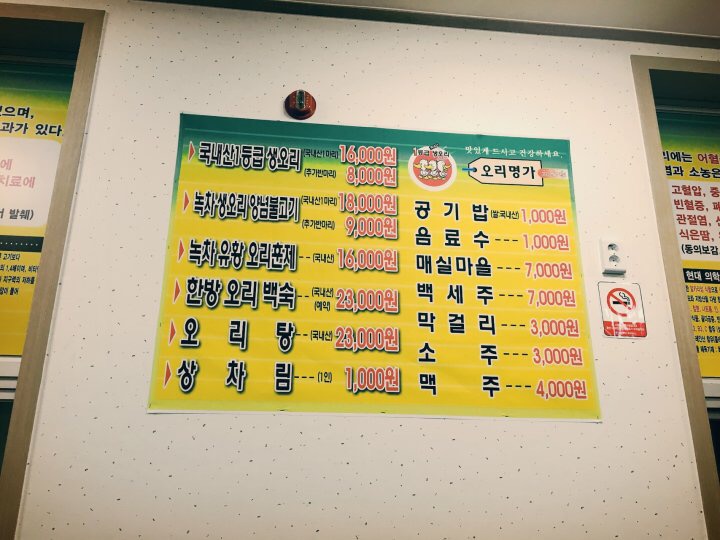 국내산1등급 생오리 (국내산1마리) 16,000원
(추가반마리) 8,000원
녹차생오리양념불고기 (국내산1마리) 18,000원
(추가반마리) 9,000원
녹차 유황 오리훈제 --- (국내산) 16,000원
한방 오리 백숙 --- (국내산) (예약) 23,000원
오 리 탕 --- (국내산) 23,000원
상 차 림 ---- (1인) 1,000원
1등급 생오리
맛있게 드시고 건강하세요.
오리명가
공 기 밥 (쌀:국내산) 1,000원
음 료 수 --- 1,000원
매실마을 --- 7,000원
백 세 주 --- 7,000원
막 걸 리 --- 3,000원
소 주 --- 3,000원
맥 주 ---- 4,000원
으며,
과가 있다.
에
치료에
서 발췌)
리에는 어혈
염과 소농은
고혈압, 중
빈혈증, 폐
관절염,
식은땀,
(동의보감
현대 의학